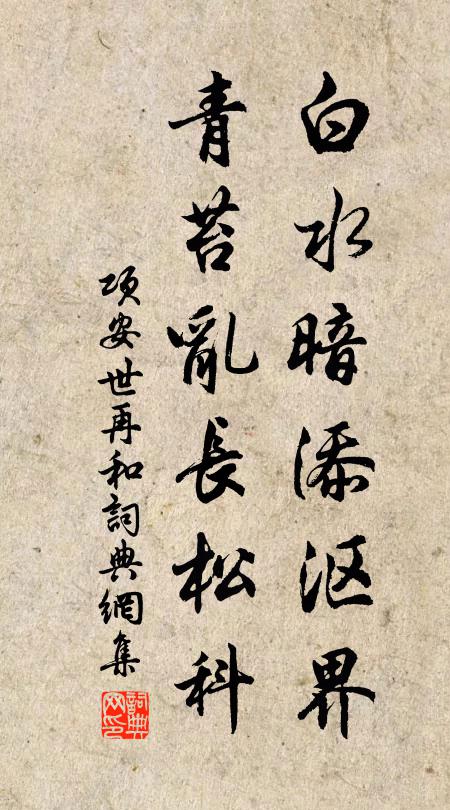 白水暗添沤界
青苔亂長松科
项安世再和詞典網集
詞典网印